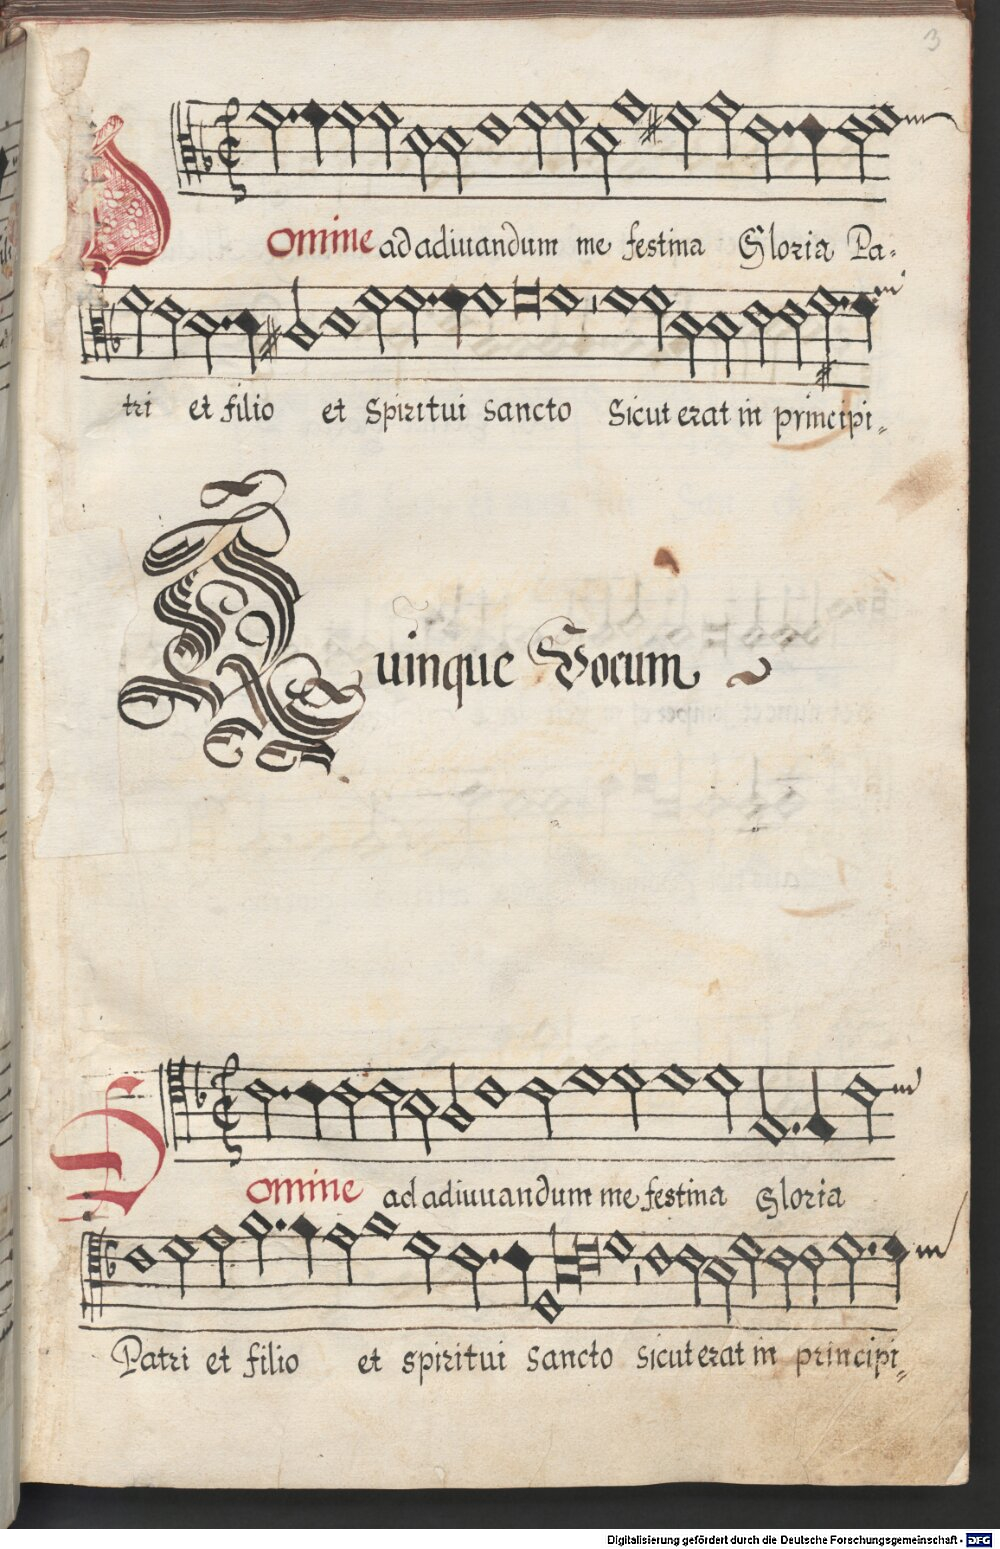 3
Domine ad adiuuandum me festina Gloria Pa-
tri et filio et Spiritui Sancto Sicut erat in principi-
Quinque Vocum
Domine ad adiuuuandum me festina Gloria
Patri et filio et spiritui Sancto Sicut erat in principi-
Digitalisierung gefördert durch die Deutsche Forschungsgemeinschaft - DFG